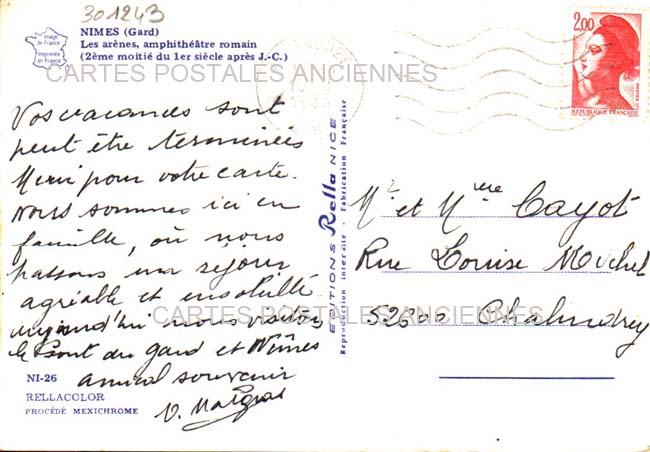 301243
NIMES (Gard)
Les arènes, amphithéâtre romain
(2ème moitié du 1er siècle après J.-C.)
Image de France
Imprimée en France
CARTES POSTALES ANCIENNES
Vos vacances sont
peut être terminées
Merci pour votre carte.
Nous sommes ici en
famille, où nous
passons un séjour
agréable et ensoleillé
aujourd'hui nous visitons
le Pont du Gard et Nîmes
amical souvenir
NI-26
RELLACOLOR
PROCÉDÉ MEXICHROME
EDITIONS Rella NICE
Reproduction interdite - Fabrication Française
2,00
POSTES
REPUBLIQUE FRANÇAISE
Mr et Mme Cayot
Rue Louise Michel
52600 Chalindrey
CARTES POSTALES ANCIENNES